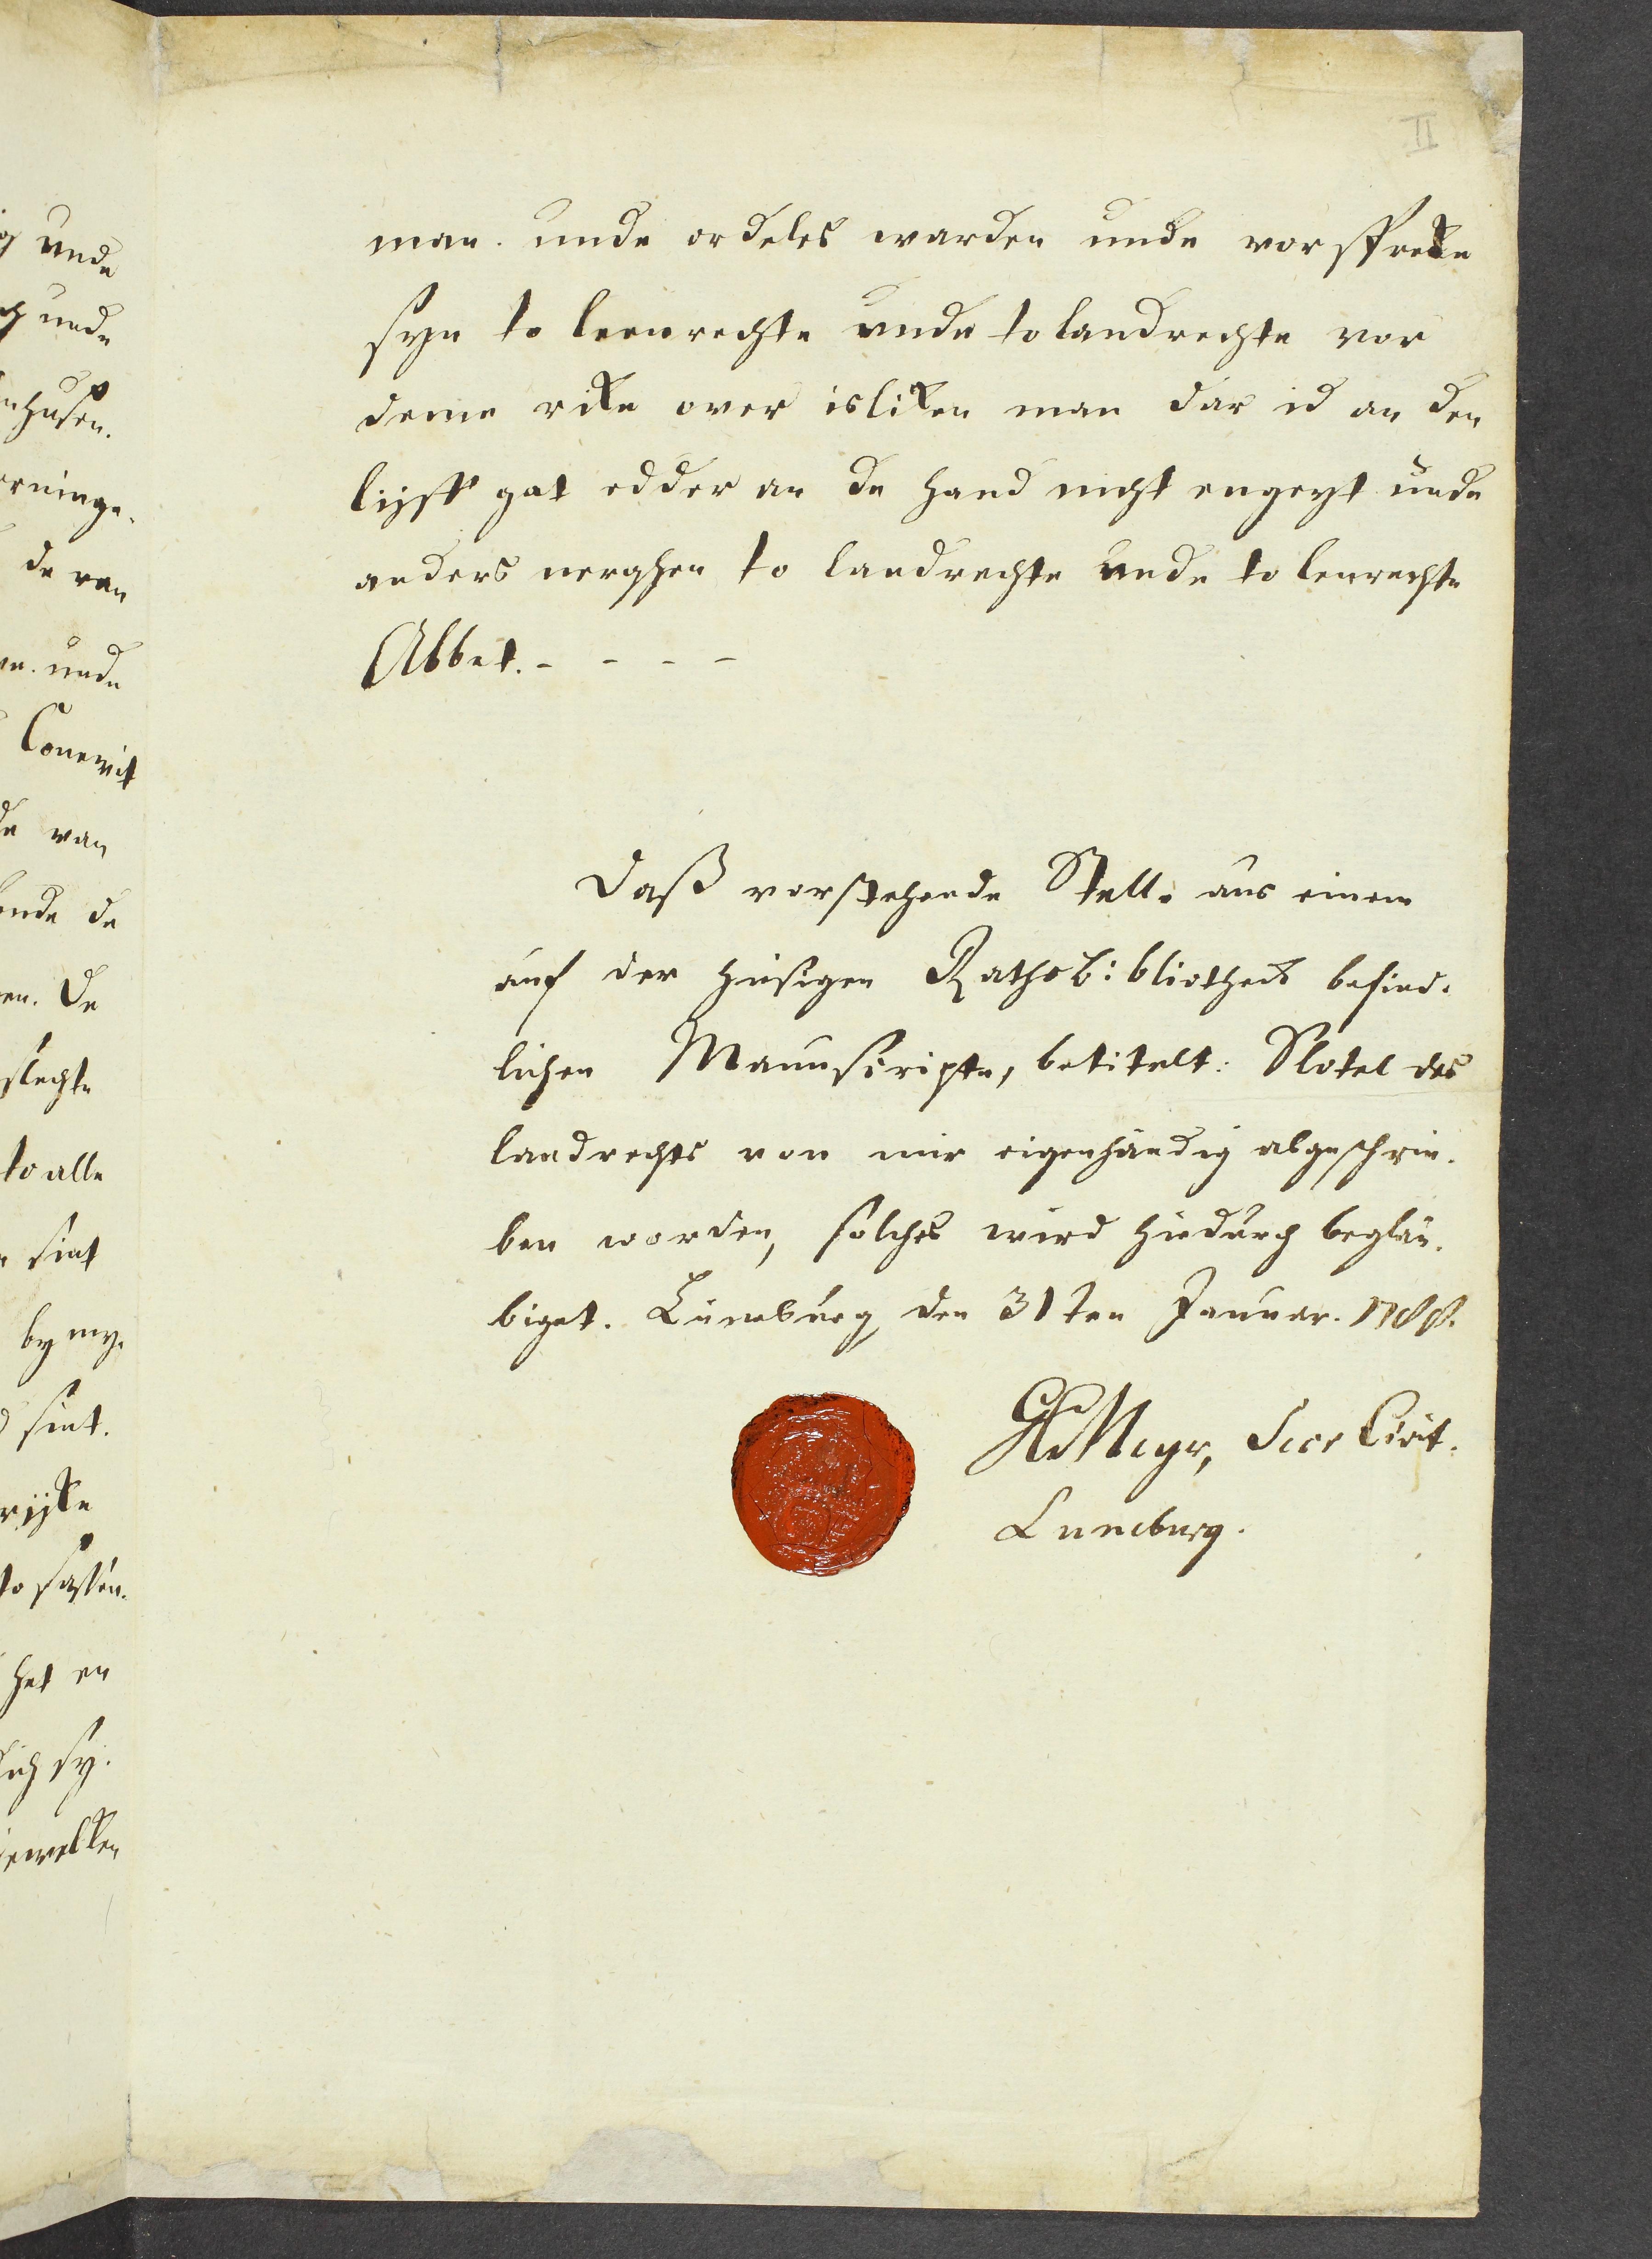 II
man. unde ordeles warden unde vorspreke
syn to leenrechte unde to landrechte vor
deme rike over isliken man dar id an den
lyff gat edder an de hand nicht engeyt unde
anders nerghen to landrechte unde to lenrechte
Abbet. - - - -
Daß vorstehende Stelle aus einem
auf der hiesigen Rathsbibliotheck befind-
lichen Manuscripte, betitelt: Slotel des
landrechts von mir eigenhändig abgeschrie-
ben worden, solches wird hiedurch beglau-
biget. Lüneburg, den 31ten Januar. 1788.
Meyr, Secr Civit.
Luneburg.
unde
unde
husen.
de van
unde
de van
unde de
De
slechte
to alle
sint
by my
sint.
ryke
to sassen.
het en
sy.